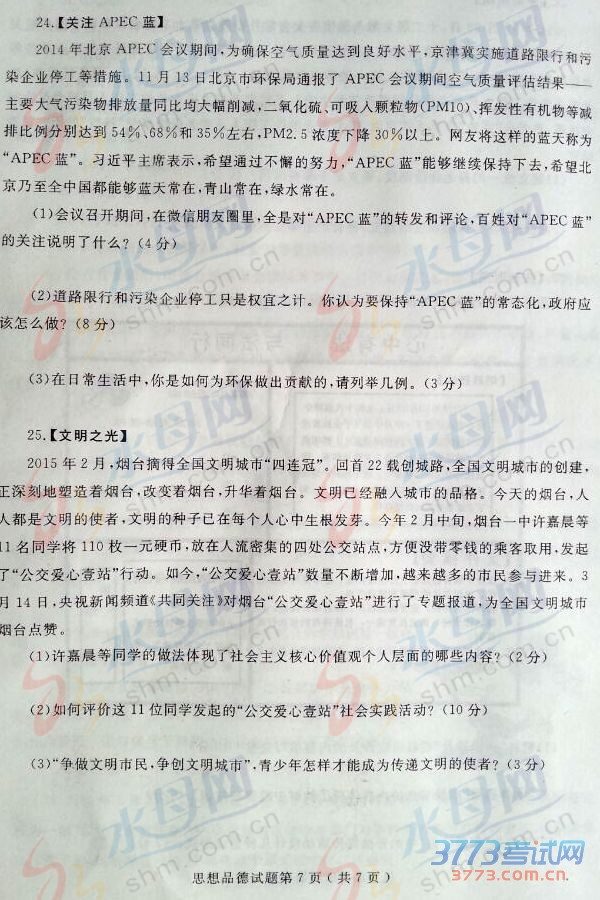 24.【关注 APEC 蓝】
2014 年北京 APEC 会议期间,为确保空气质量达到良好水平,京津冀实施道路限行和污
染企业停工等措施。11 月 13 日北京市环保局通报了 APEC 会议期间空气质量评估结果——
主要大气污染物排放量同比均大幅削减,二氧化硫、可吸入颗粒物(PM10)、挥发性有机物等减
排比例分别达到 54%、68%和 35%左右,PM2.5 浓度下降 30%以上。网友将这样的蓝天称为
“APEC 蓝”。习近平主席表示,希望通过不懈的努力,“APEC 蓝”能够继续保持下去,希望北
京乃至全中国都能够蓝天常在,青山常在,绿水常在。
(1)会议召开期间,在微信朋友圈里,全是对“APEC 蓝”的转发和评论,百姓对“APEC 蓝”
的关注说明了什么?(4 分)
(2)道路限行和污染企业停工只是权宜之计。你认为要保持“APEC 蓝”的常态化,政府应
该怎么做?(8 分)
(3)在日常生活中,你是如何为环保做出贡献的,请列举几例。(3 分)
25.【文明之光】
2015 年 2 月,烟台摘得全国文明城市“四连冠”。回首 22 载创城路,全国文明城市的创建,
正深刻地塑造着烟台,改变着烟台,升华着烟台。文明已经融入城市的品格。今天的烟台,人
人都是文明的使者,文明的种子已在每个人心中生根发芽。今年 2 月中旬,烟台一中许嘉晨等
11 名同学将 110 枚一元硬币,放在人流密集的四处公交站点,方便没带零钱的乘客取用,发起
了“公交爱心壹站”行动。如今,“公交爱心壹站”数量不断增加,越来越多的市民参与进来。3
月 14 日,央视新闻频道《共同关注》对烟台“公交爱心壹站”进行了专题报道,为全国文明城市
烟台点赞。
(1)许嘉晨等同学的做法体现了社会主义核心价值观个人层面的哪些内容?(2 分)
(2)如何评价这 11 位同学发起的“公交爱心壹站”社会实践活动?(10 分)
(3)“争做文明市民,争创文明城市”,青少年怎样才能成为传递文明的使者?(3 分)
思想品德试题第 7 页(共 7 页)
3773考试网
水母网
shm.com.cn